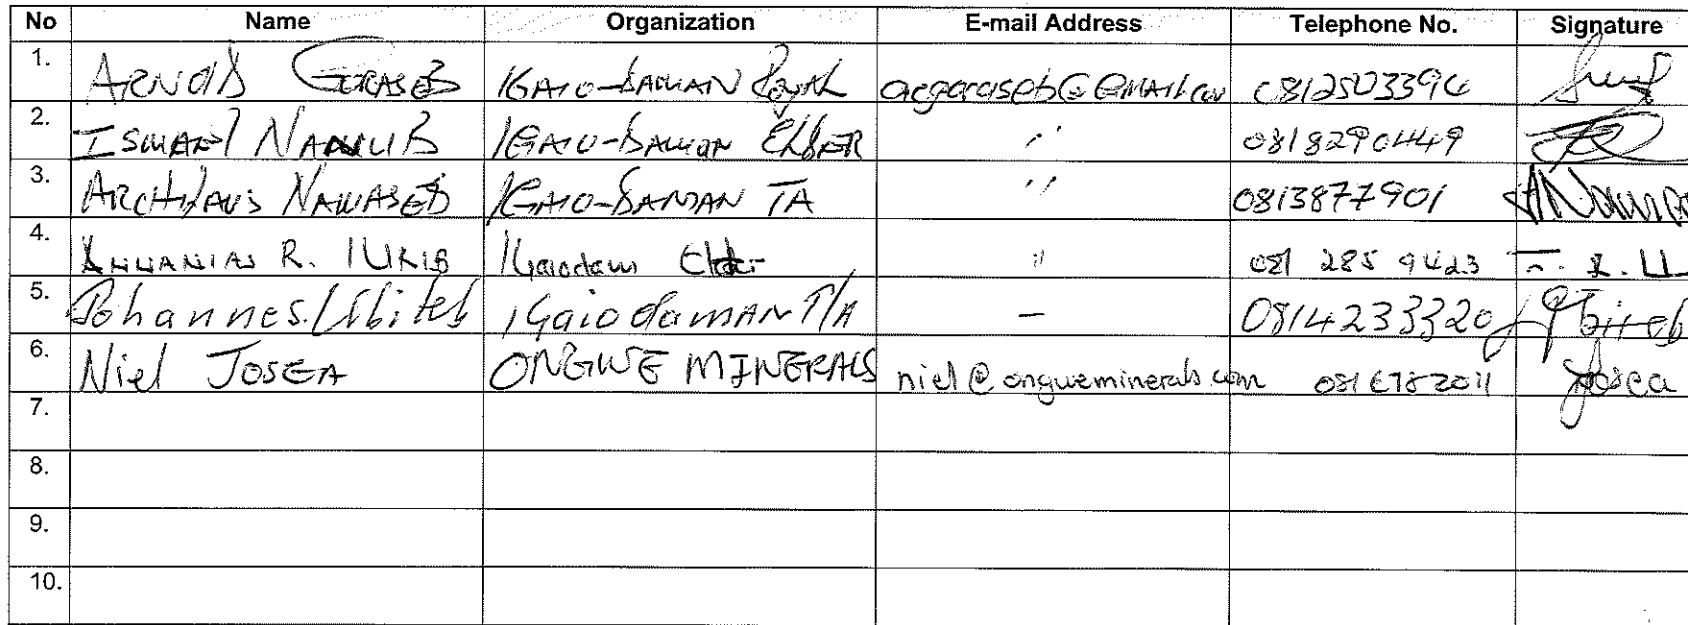 No Name Organization E-mail Address Telephone No. Signature
1. ARNOLD GARASEB |GAIO-DAMAN Royal acgaraseb@GMAIL.com
2. ISMAEL |GAIO-DAMAN ELDER " 0818290449
3. ARCHILAUS NAWASEB |GAIO-DAMAN TA " 0813877901
4. ANNANIAS R. |URIB |Gaiodam Elder " 081 285 9423
5. Johannes |Gaiodaman T/A – 0814233320
6. Niel JOSEA ONGWE MINERALS niel@ongweminerals.com 0816782011 Josea
7.
8.
9.
10.